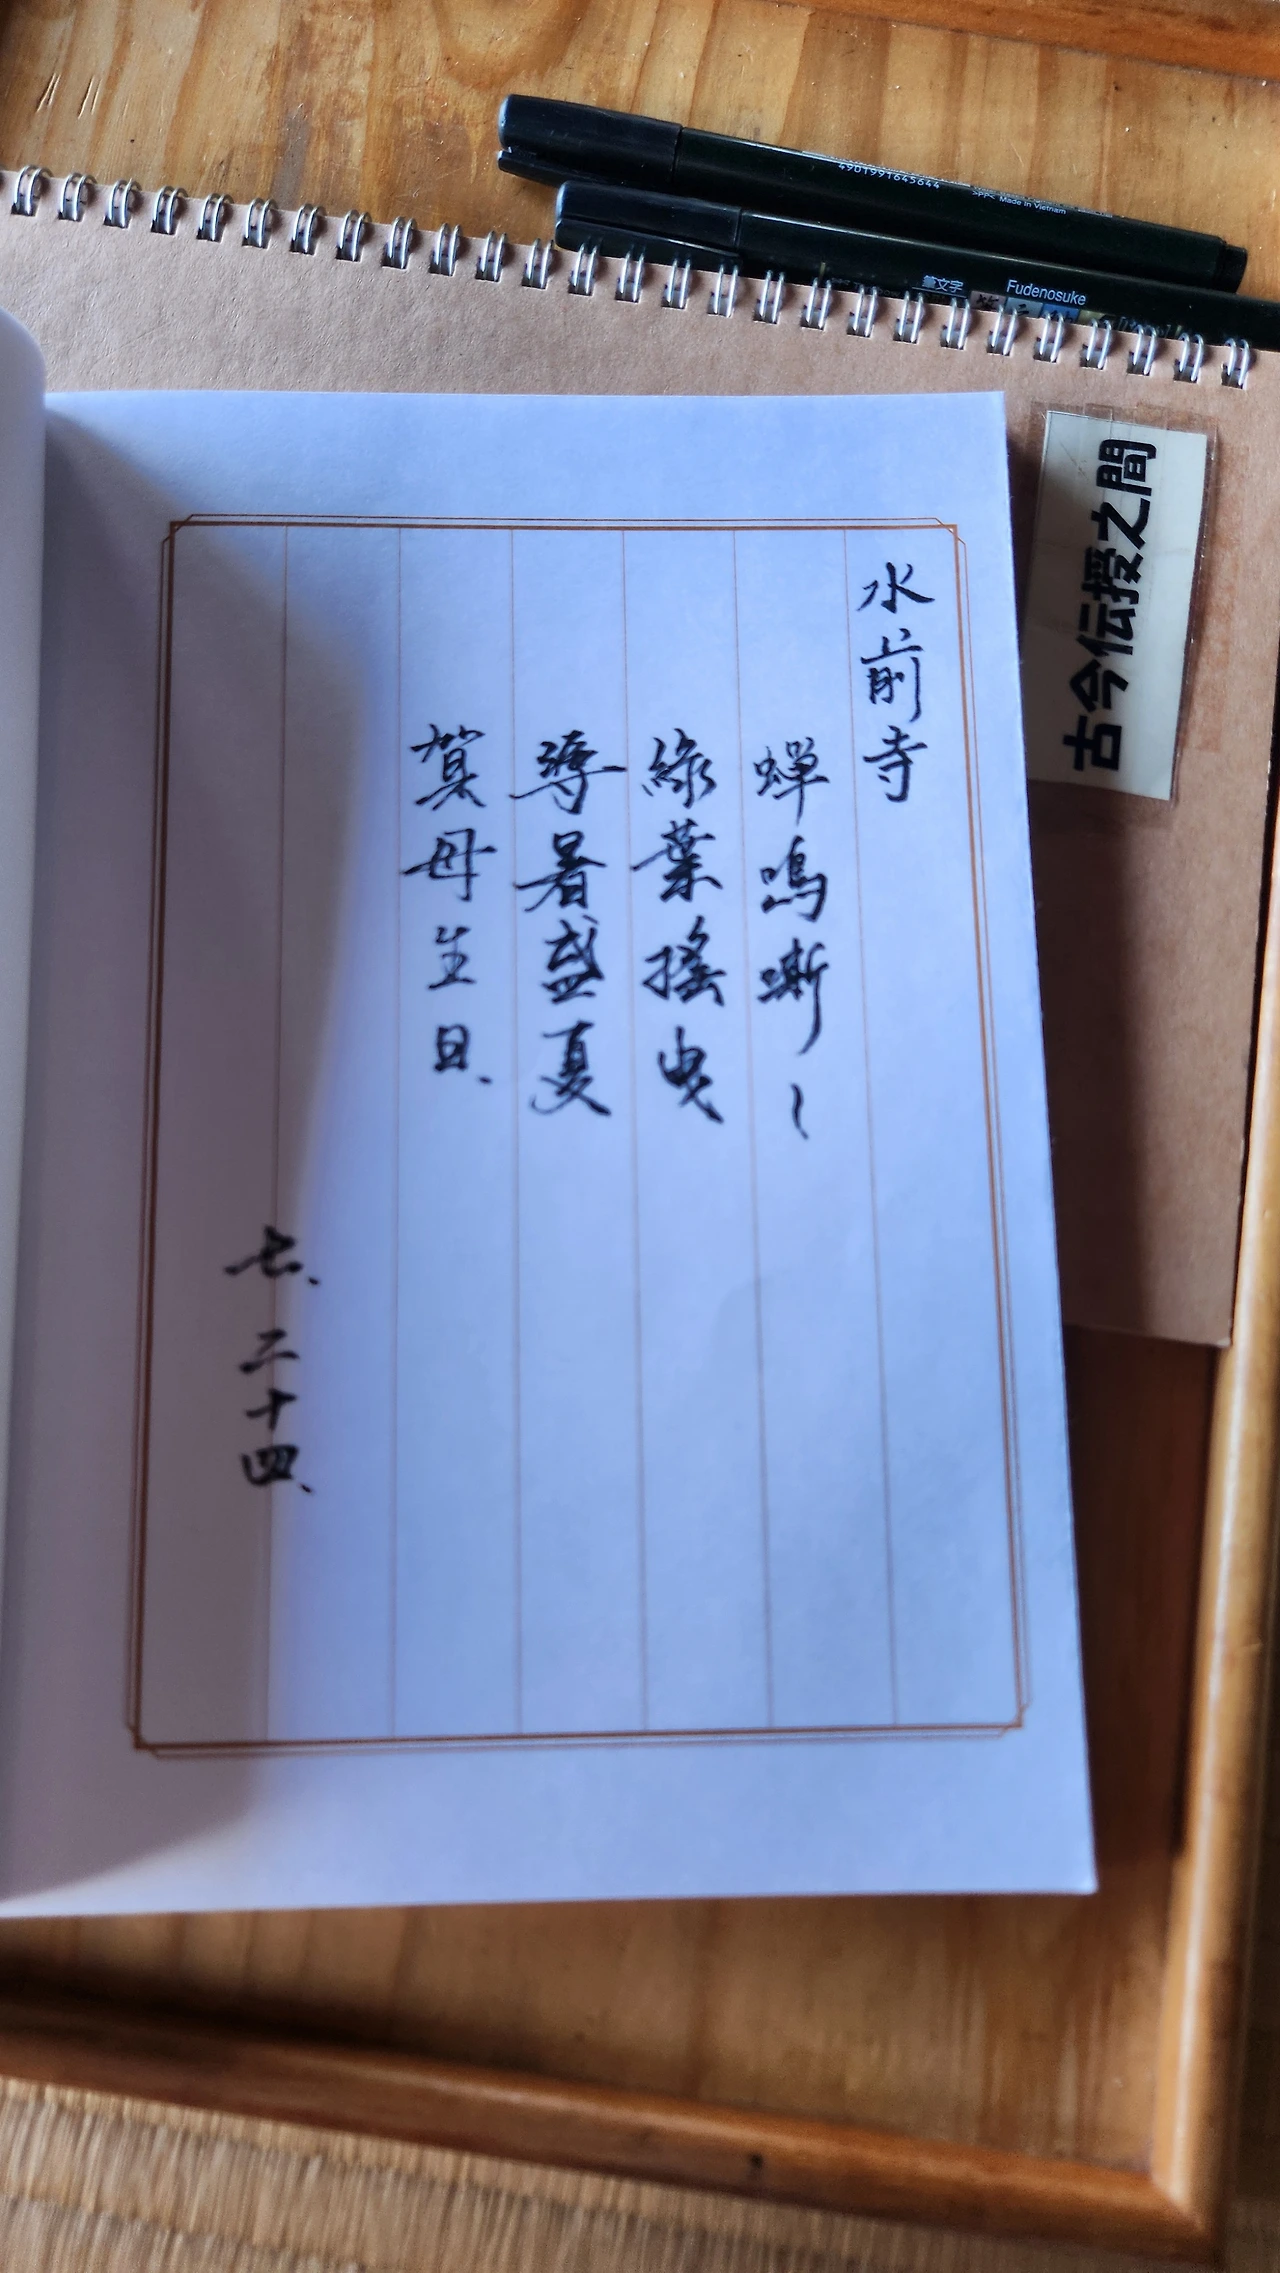 4901991645644
>PP< Made in Vietnam
筆文字
Fudenosuke
古今伝授之間
水前寺
蟬鳴嘶〻
綠葉搖曳
溽暑盛夏
賀母生日、
七、二十四、